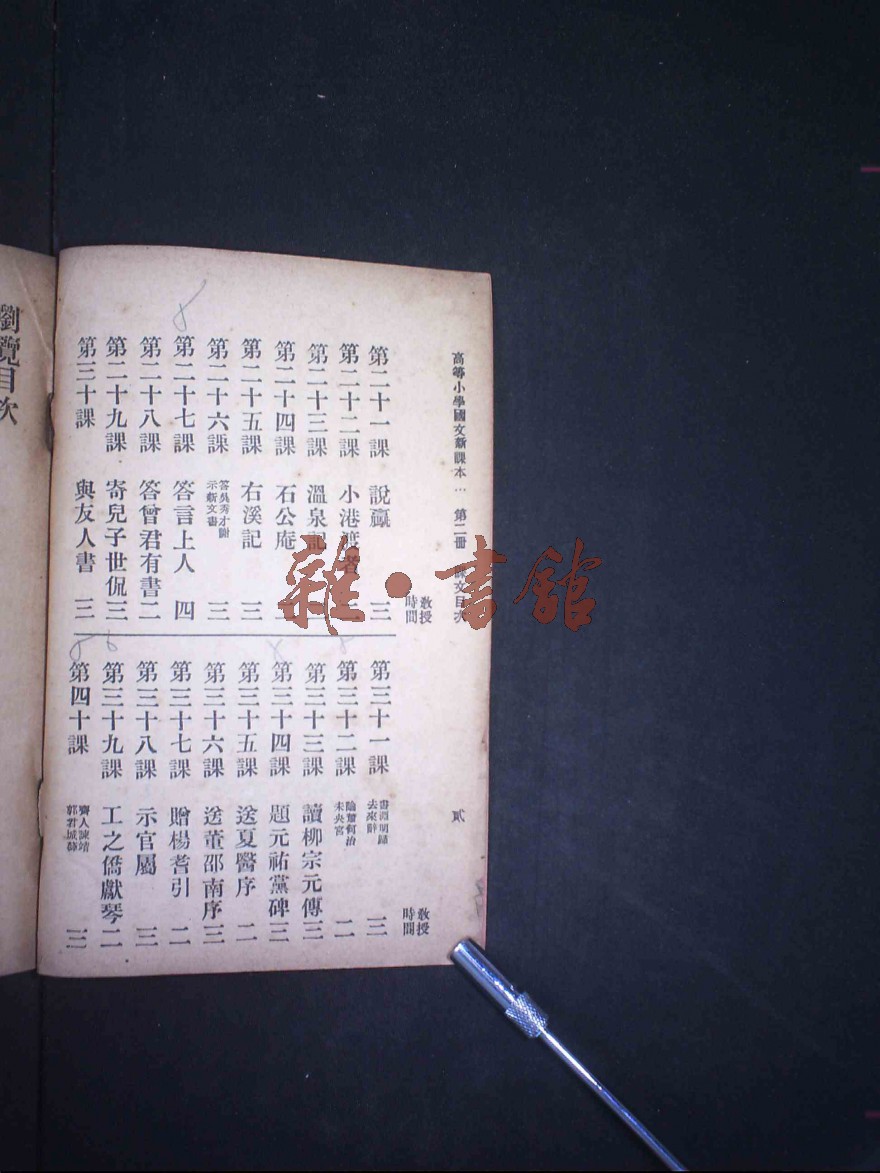 高等小學國文新課本 … 第二冊 課文目次
貳
教授時間
第二十一課 說贏 三
第二十二課 小港渡者
第二十三課 溫泉記
第二十四課 石公庵
第二十五課 右溪記 三
第二十六課 答吳秀才謝示新文書 三
第二十七課 答言上人 四
第二十八課 答曾君有書 二
第二十九課 寄兒子世侃 三
第三十課 與友人書 三
教授時間
第三十一課 書淵明歸去來辭 三
第三十二課 論蕭何治未央宮 二
第三十三課 讀柳宗元傳 三
第三十四課 題元祐黨碑 三
第三十五課 送夏醫序 二
第三十六課 送董邵南序 三
第三十七課 贈楊耆引 二
第三十八課 示官屬 三
第三十九課 工之僑獻琴 二
第四十課 齊人諫靖郭君城薛 三
瀏覽目次
雜·書館